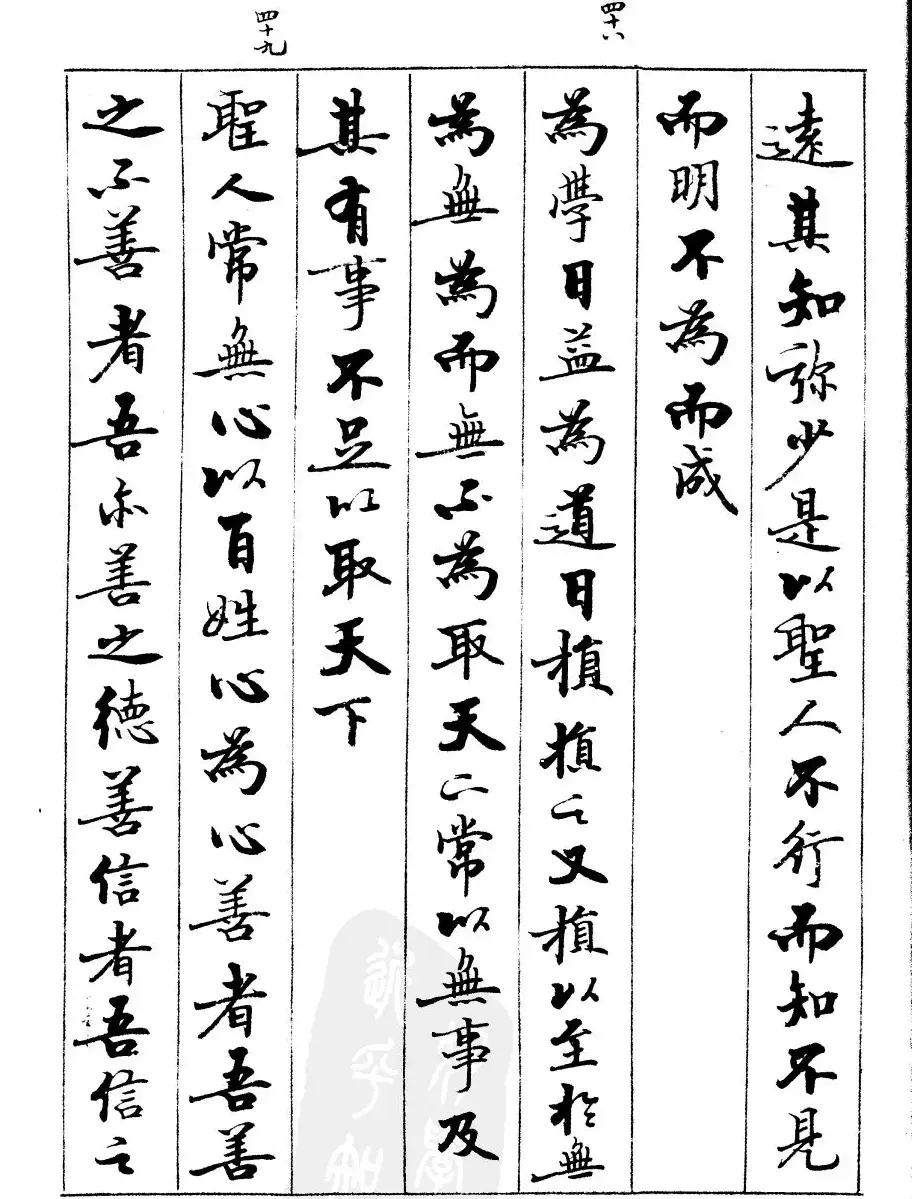 四十六
四十九
遠其知弥少是以聖人不行而知不見
而明不為而成
為學日益為道日損損之又損以至於無
為無為而無不為取天下常以無事及
其有事不足以取天下
聖人常無心以百姓心為心善者吾善
之不善者吾亦善之德善信者吾信之